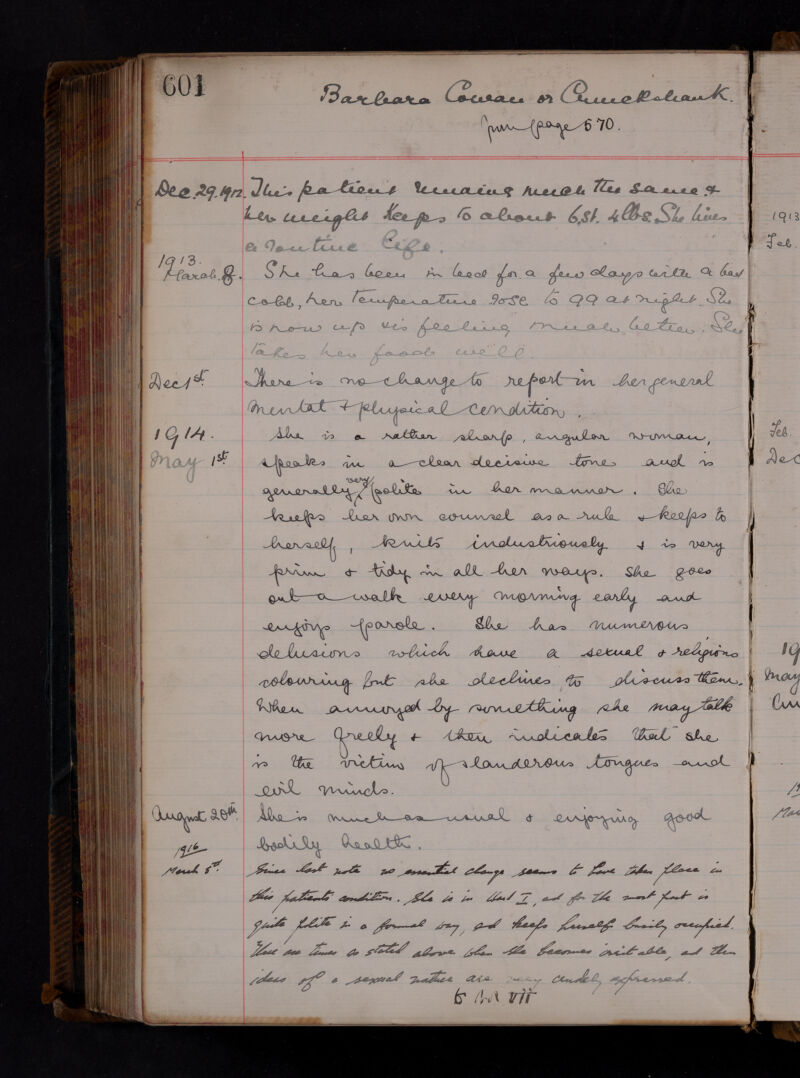 601
Barbara Cowan or Cruickshank.
from page 570.
Dec. 29. 1912. This patient remains much the same &
her weight keeps to about 6 st. 4 lbs. She lives
a routine life.
1913.
March 8. She has been in bed for a few days with a bad
cold, her temperature rose to 99 at night. She
is now up & is feeling much better. She
takes her food well.
Dec 1st There is no change to report in her general
mental & physical condition.
1914. She is a rather sharp, angular woman,
May 1st speaks in a clear decisive tone and is
generally very polite in her manner. She
keeps her own counsel as a rule & keeps to
herself, knits industriously & is very
prim & tidy in all her ways. She goes
out a walk every morning early and
enjoys parole. She has numerous
delusions which have a sexual & religious
colouring but she declines to discuss them.
When annoyed by something she may talk
more freely & then indicates that she
is the victim of slanderous tongues and
evil minds.
August 20th. She is much as usual & enjoying good
bodily health.
1916
March 8th. Since last note no essential change seems to have taken place in
this patient's condition. She is in Ward I, and for the most part is
quite polite in a formal way, and keeps herself busily occupied.
There are times as stated above when she becomes irritable, and then
ideas of a sexual nature are very crudely expressed.
to Vol VII
1913
Feb.
Feb.
Dec
19
May